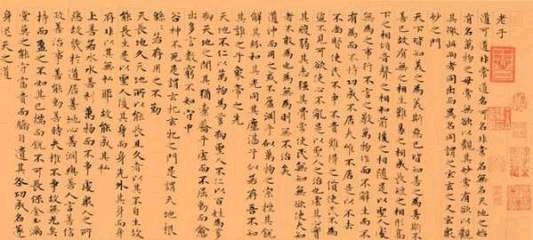 老子
道可道非常道名可名非常名無名天地之始
有名萬物之母常無欲以觀其妙常有欲以觀
其徼此兩者同出而異名同謂之玄玄之又玄衆
妙之門
天下皆知美之為美斯惡已皆知善之為善斯不
善已故有無之相生難易之相成長短之相形高
下之相傾音聲之相和前後之相隨是以聖人處
無為之事行不言之教萬物作而不辭生而不
有為而不恃功成不居夫惟不居是以不去
不尚賢使民不爭不貴難得之貨使民不為盜
不見可欲使心不亂是以聖人之治虛其心實
其腹弱其志強其骨常使民無知無欲使夫知
者不敢為也為無為則無不治矣
道沖而用之或不盈淵乎似萬物之宗挫其銳
解其紛和其光同其塵湛兮似若存吾不知
誰之子象帝之先
天地不仁以萬物為芻狗聖人不仁以百姓為芻
狗天地之間其猶橐籥乎虛而不屈動而愈
出多言數窮不如守中
谷神不死是謂玄牝玄牝之門是謂天地根
綿綿若存用之不勤
天長地久天地所以能長且久者以其不自生故
能長生是以聖人後其身而身先外其身而身
存非以其無私耶故能成其私
上善若水水善利萬物而不爭處衆人之所
惡故幾於道居善地心善淵與善人言善信
政善治事善能動善時夫惟不爭故無尤矣
持而盈之不如其已揣而銳之不可長保金玉滿
堂莫之能守富貴而驕自遺其咎功成名遂
身退天之道